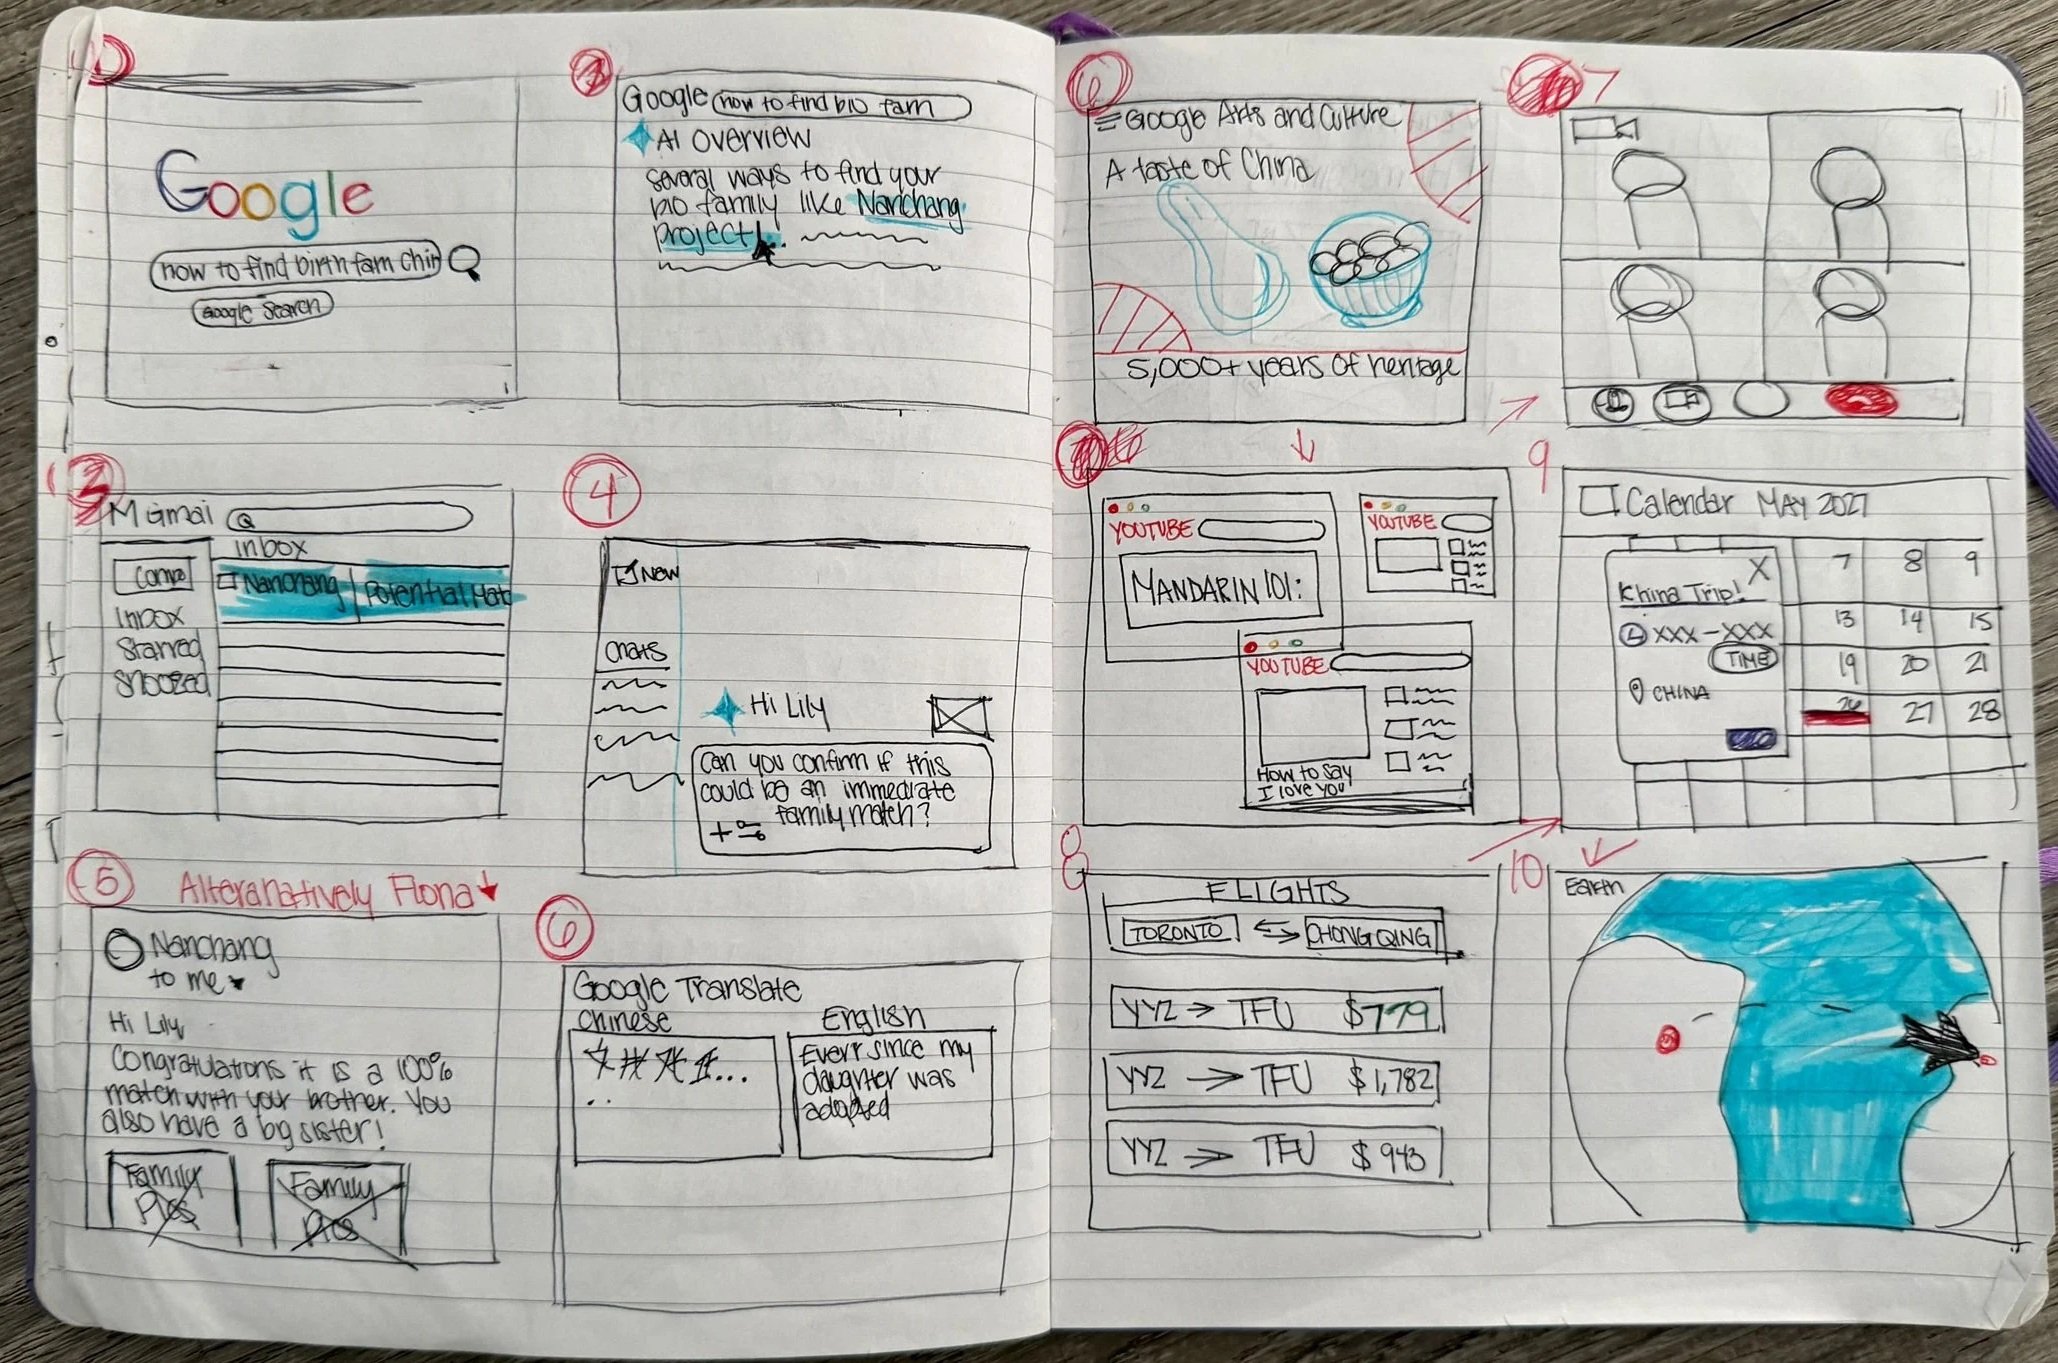 1
Google
how to find birth fam chin
Google Search
Google how to find bio fam
AI OVERVIEW
several ways to find your
bio family like Nanchang
project!
3
M Gmai
Inbox
Comp
Nanchang | Potential Mat
Inbox
Starred
Snoozed
4
New
Chats
Hi Lily
Can you confirm if this
could be an immediate
family match?
+
5
Alteranatively Fiona
Nanchang
to me
Hi Lily
Congratulations it is a 100%
match with your brother. You
also have a big sister!
Family
Pics
Family
Pics
6
Google Translate
Chinese
English
Everr since my
daughter was
adopted
6
Google Arts and Culture
A taste of China
5,000+ years of heritage
7
YOUTUBE
MANDARIN 101:
YOUTUBE
YOUTUBE
How to say
I love you
8
FLIGHTS
TORONTO
CHONGQING
YYZ → TFU $779
YYZ → TFU $1,782
YYZ → TFU $943
9
Calendar MAY 2027
X
China Trip!
XXX - XXX
TIME
CHINA
7 8 9
13 14 15
19 20 21
26 27 28
10
Earth